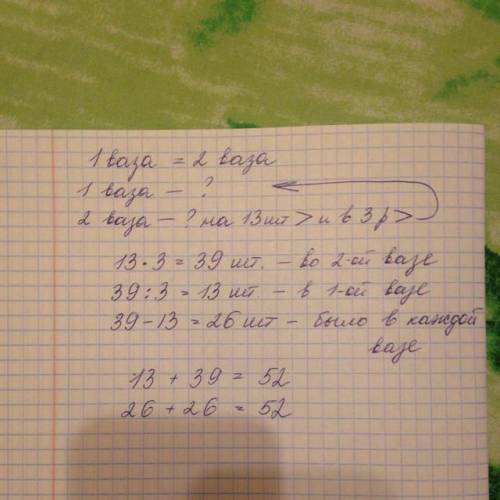 1 ваза = 2 ваза
1 ваза — ?
2 ваза — ? на 13 шт > и в 3 р >
13 · 3 = 39 шт. — во 2-ой вазе
39 : 3 = 13 шт — в 1-ой вазе
39 − 13 = 26 шт — было в каждой
вазе
13 + 39 = 52
26 + 26 = 52